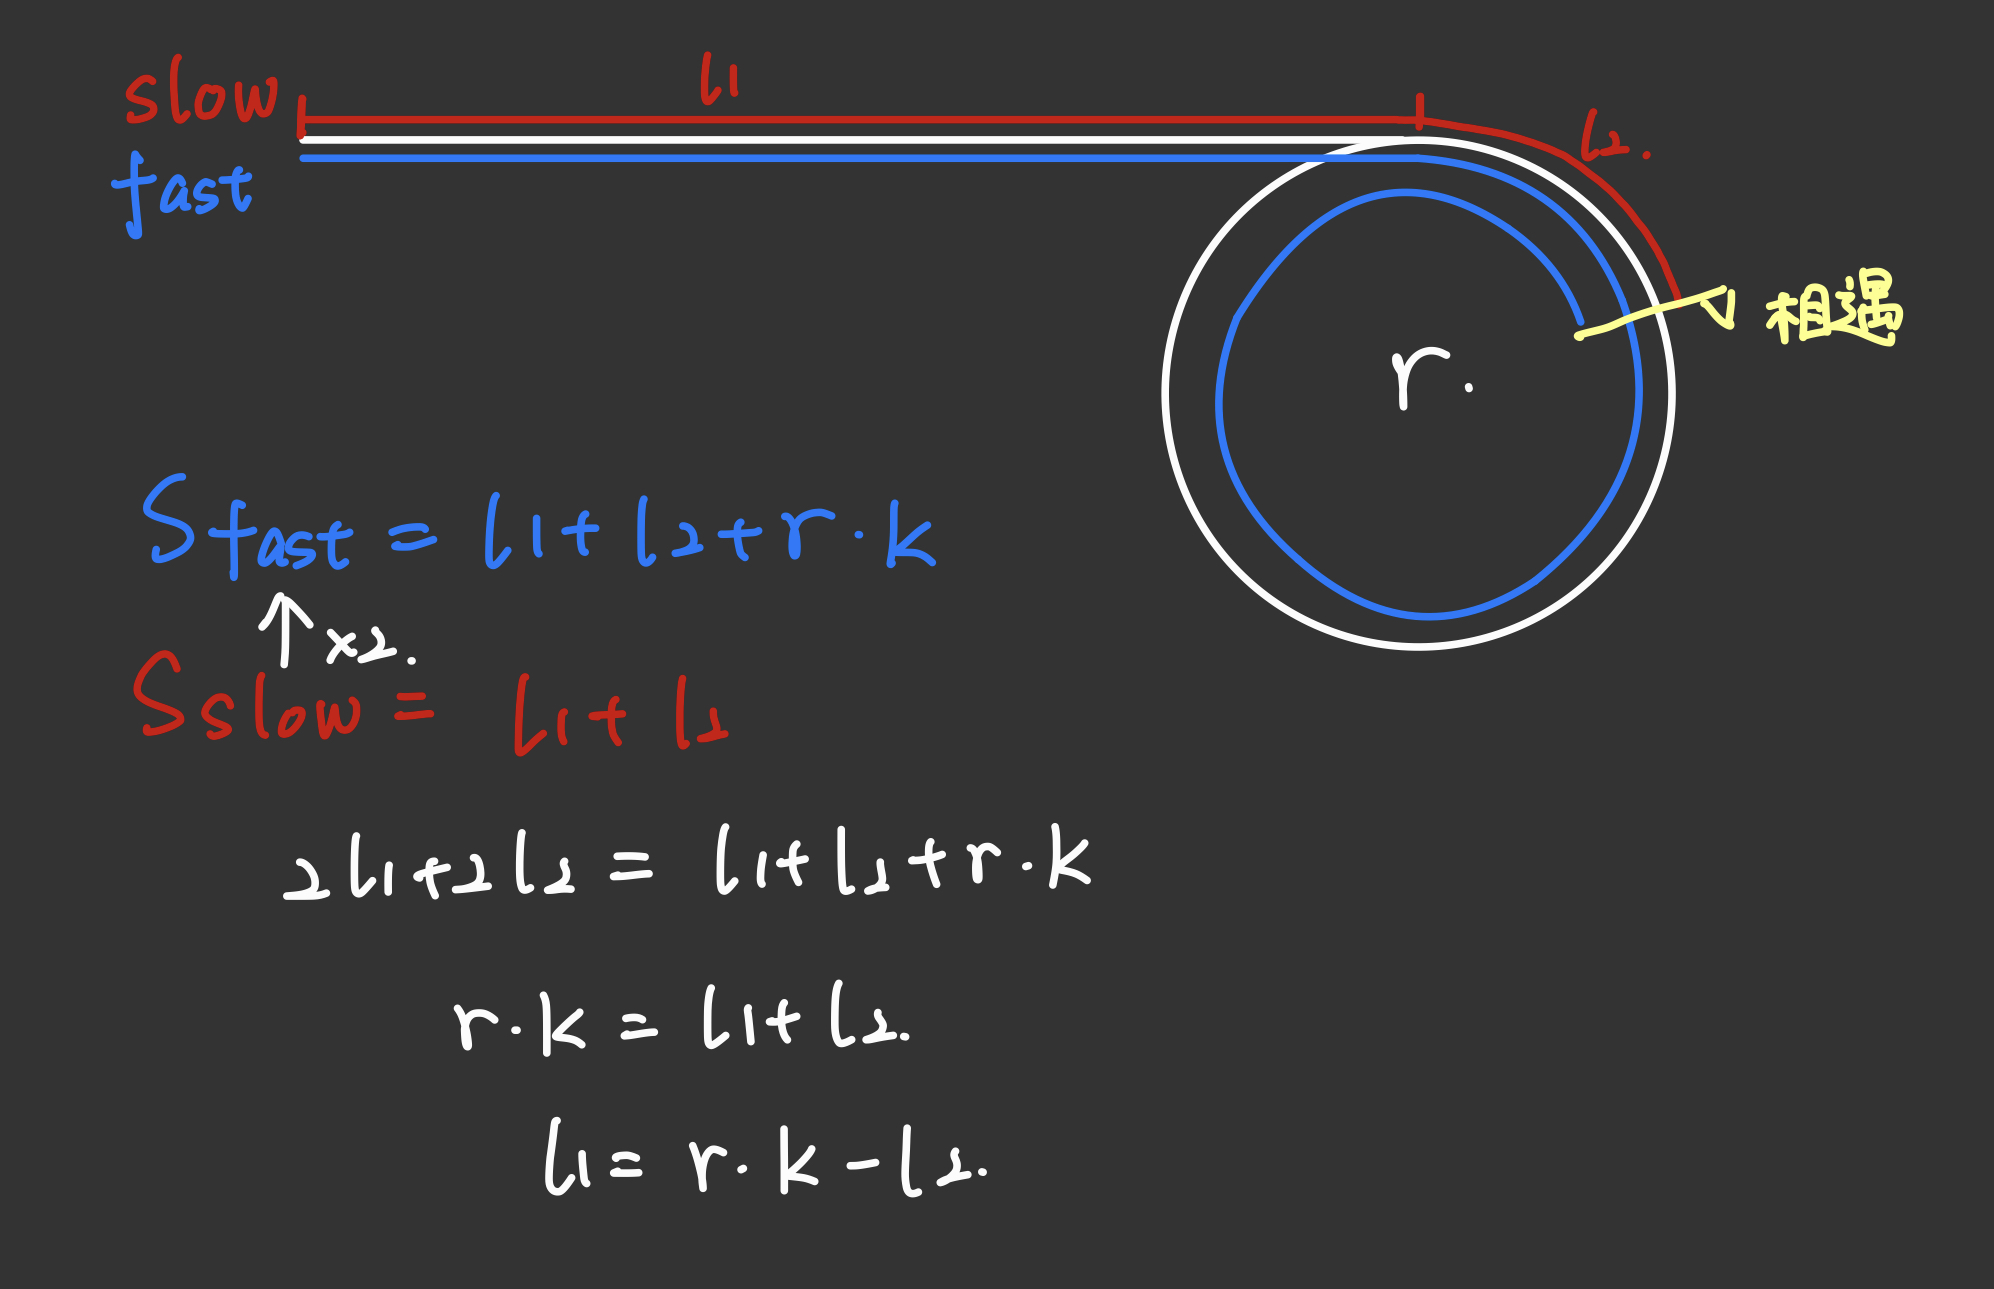 slow
l1
l2.
fast
相遇
r.
Sfast = l1 + l2 + r · k
↑ x2.
Sslow = l1 + l2
2l1 + 2l2 = l1 + l2 + r · k
r · k = l1 + l2.
l1 = r · k - l2.